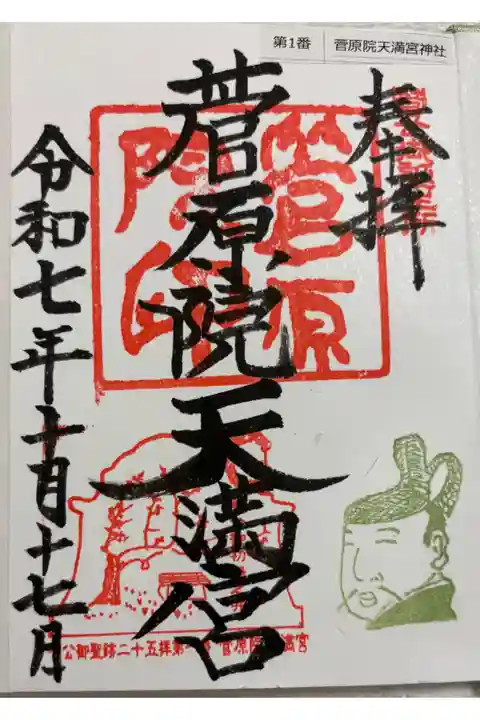 第1番 菅原院天満宮神社
奉拝
菅原院天満宮
令和七年十月十七月
菅原
院印
公御聖跡二十五拝第一番 菅原院天満宮